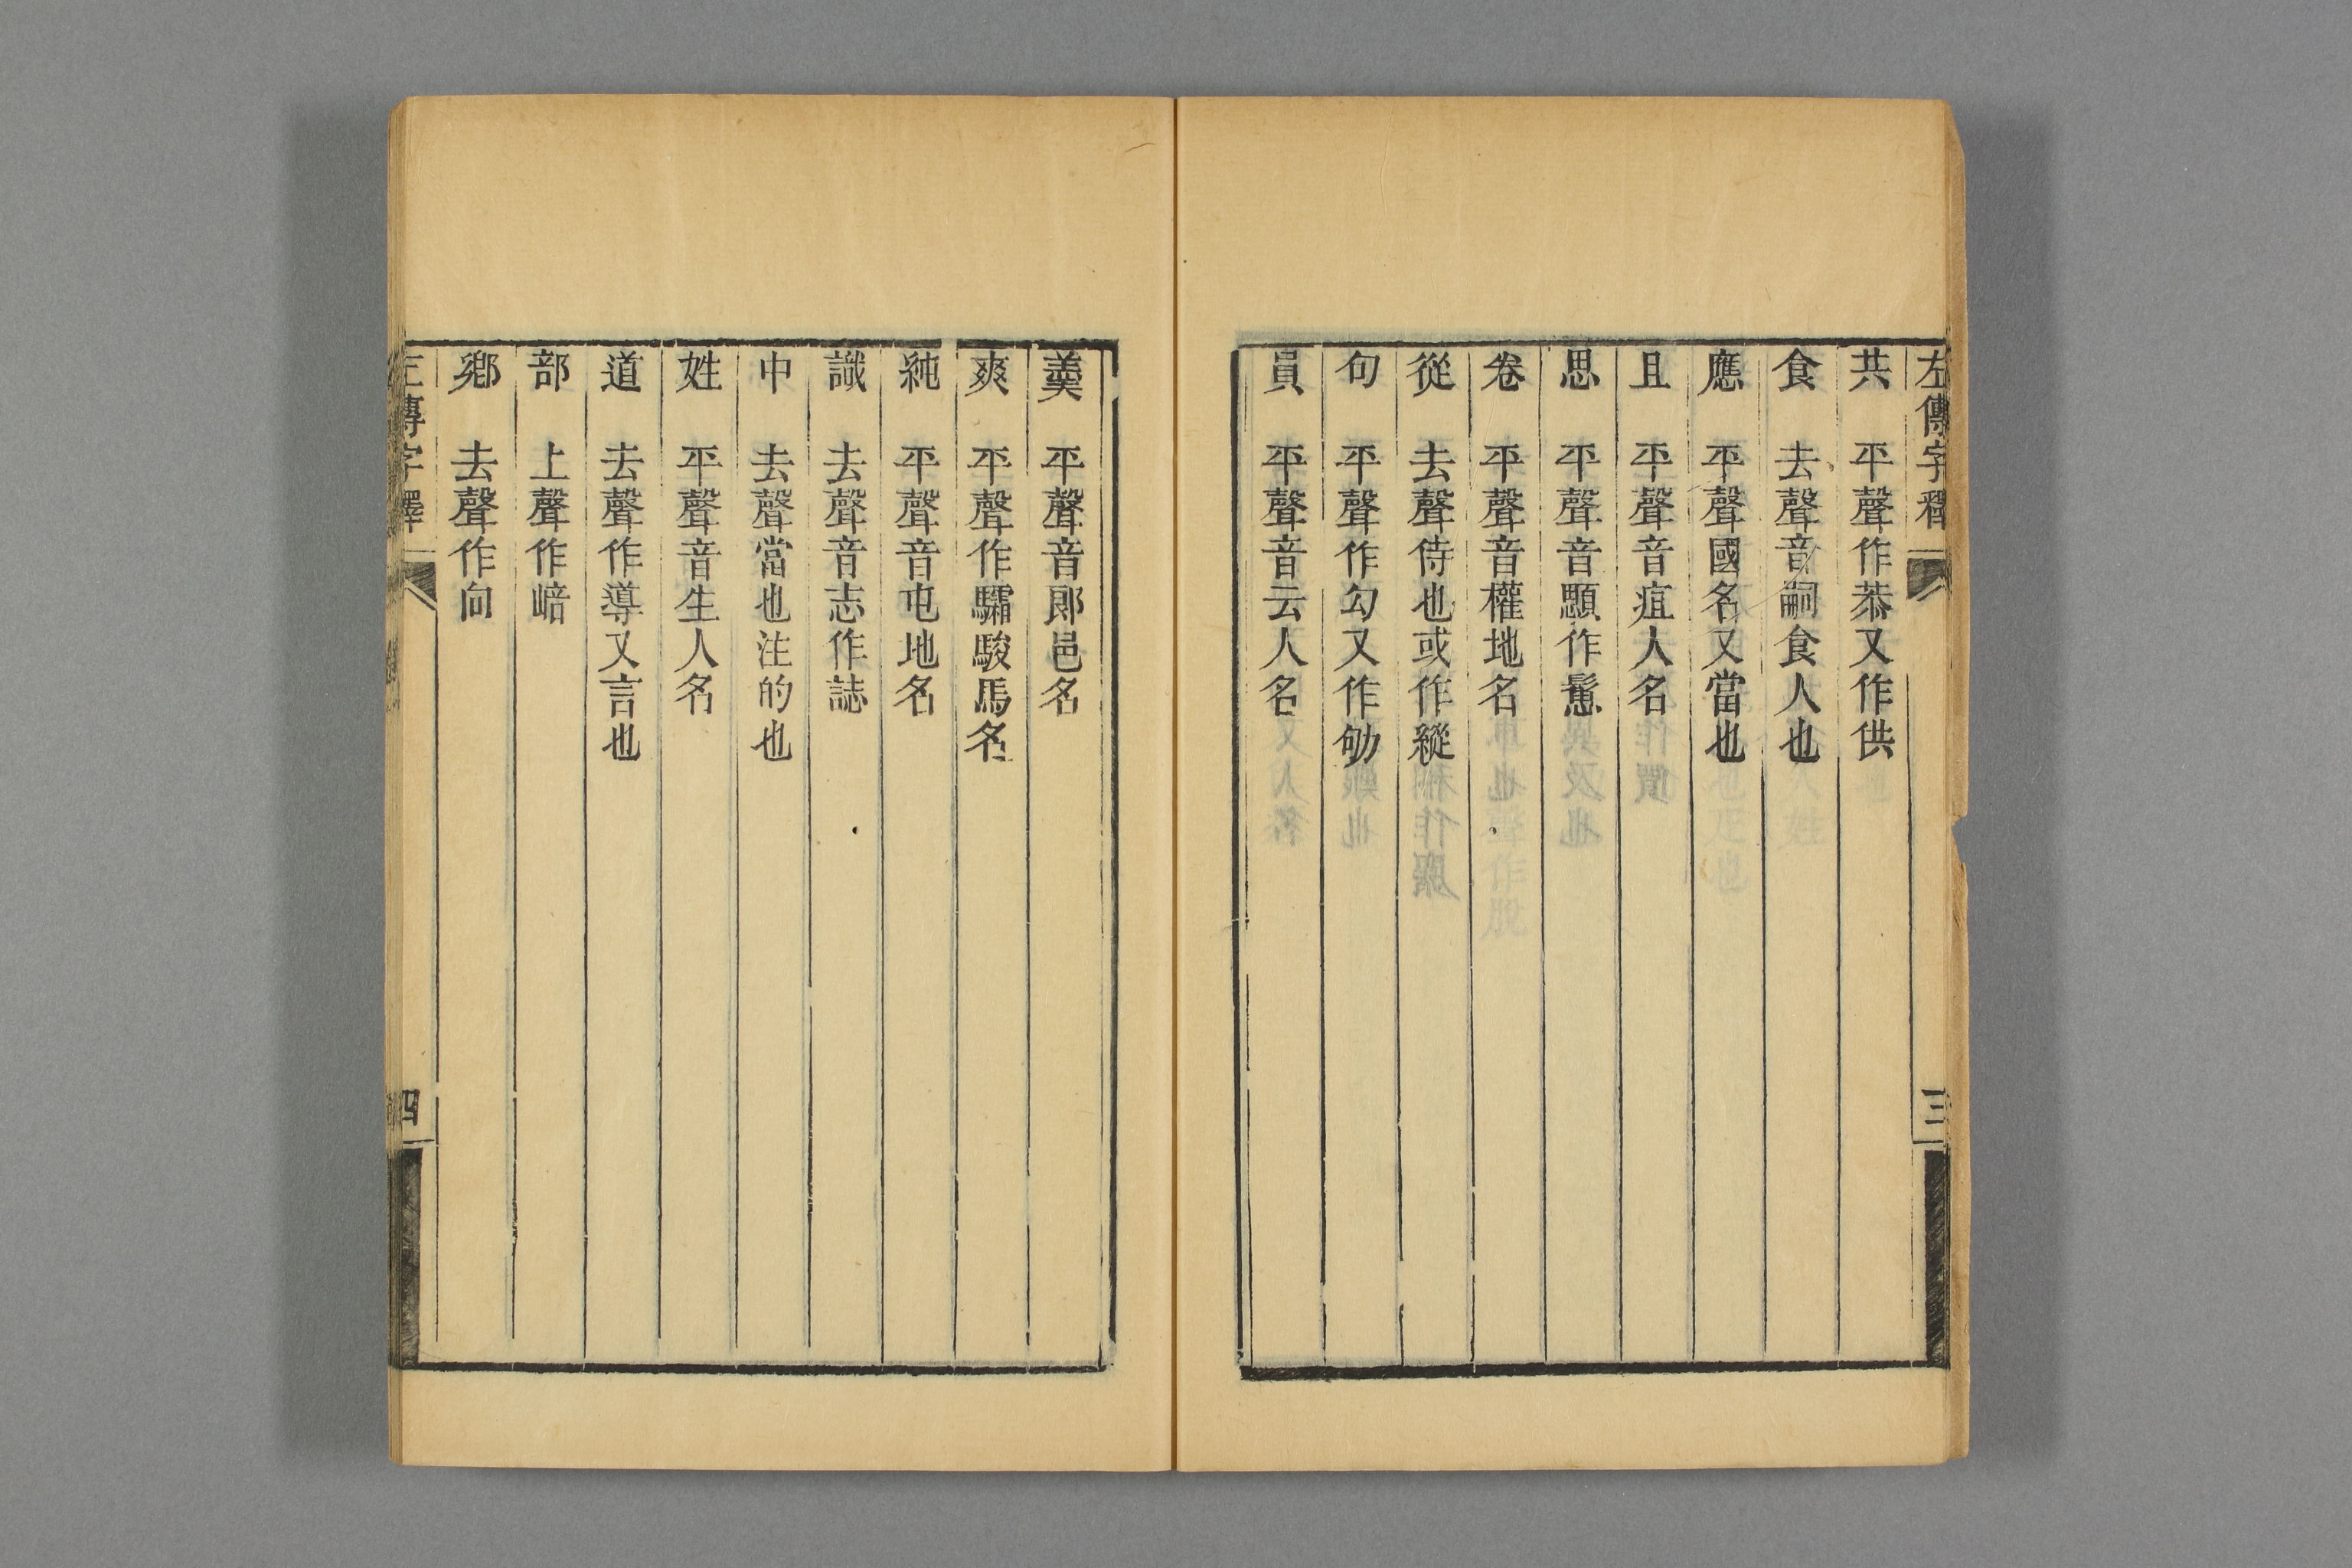 左傳字釋
三
共　平聲作恭又作供
食　去聲音嗣食人也
應　平聲國名又當也
且　平聲音疽人名
思　平聲音顋作鬤
卷　平聲音權地名
從　去聲侍也或作縱
句　平聲作勾又作劬
員　平聲音云人名
羹　平聲音郎邑名
爽　平聲作驦駿馬名
純　平聲音屯地名
識　去聲音志作誌
中　去聲當也注的也
姓　平聲音生人名
道　去聲作導又言也
部　上聲作㟝
鄉　去聲作向
左傳字釋
四